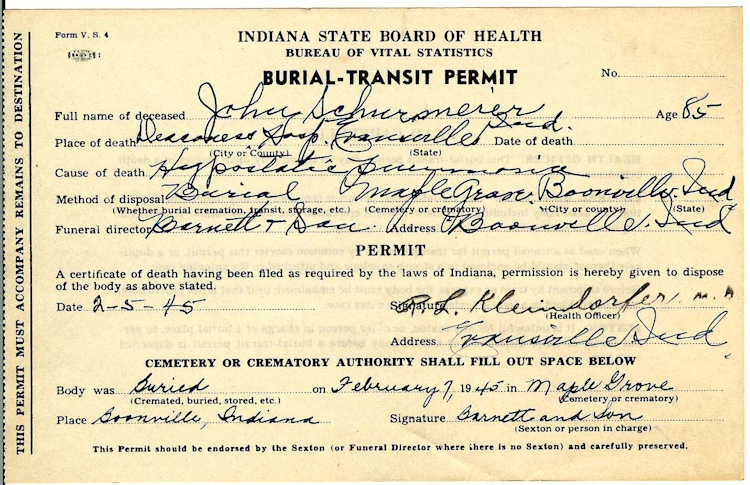 Form V. S. 4
INDIANA STATE BOARD OF HEALTH
BUREAU OF VITAL STATISTICS
BURIAL-TRANSIT PERMIT
No.
Full name of deceased John Schurmerer Age 85
Place of death Deaconess Hosp. Evansville Ind. Date of death
(City or County) (State)
Cause of death Hypostatic Pneumonia
Method of disposal Burial Maple Grove Boonville, Ind
(Whether burial cremation, transit, storage, etc.) (Cemetery or crematory) (City or county) (State)
Funeral director Barnett + Son. Address Boonville, Ind
PERMIT
A certificate of death having been filed as required by the laws of Indiana, permission is hereby given to dispose
of the body as above stated.
Date 2-5-45 Signature P. L. Kleindorfer M.D
(Health Officer)
Address Evansville Ind
CEMETERY OR CREMATORY AUTHORITY SHALL FILL OUT SPACE BELOW
Body was Buried on February 7, 1945 in Maple Grove
(Cremated, buried, stored, etc.) (Cemetery or crematory)
Place Boonville, Indiana Signature Barnett and Son
(Sexton or person in charge)
This Permit should be endorsed by the Sexton (or Funeral Director where there is no Sexton) and carefully preserved.
THIS PERMIT MUST ACCOMPANY REMAINS TO DESTINATION